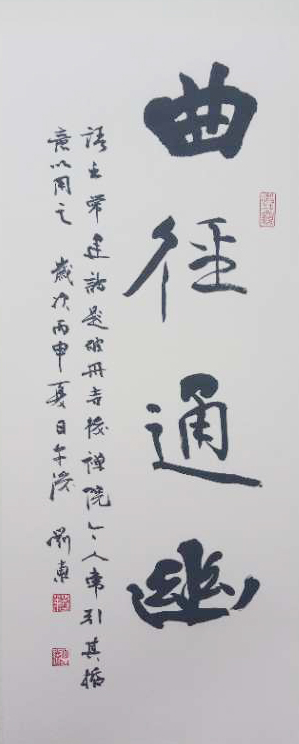 曲徑通幽
語出常建詩題破山寺後禪院今人常引其
意以用之 歲次丙申夏日午後 劉東